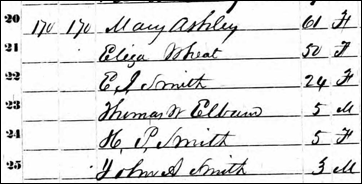 20 170 170 Mary Ashley 61 F
21 Eliza Wheat 50 F
22 E. J. Smith 24 F
23 Thomas W Elbum 5 M
24 H. P. Smith 5 F
25 John A Smith 3 M